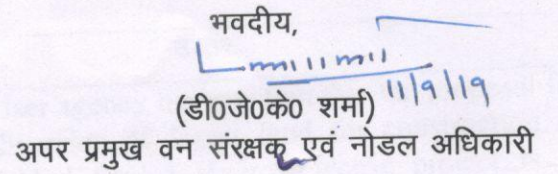 भवदीय,
11/9/19
(डी0जे0के0 शर्मा)
अपर प्रमुख वन संरक्षक एवं नोडल अधिकारी